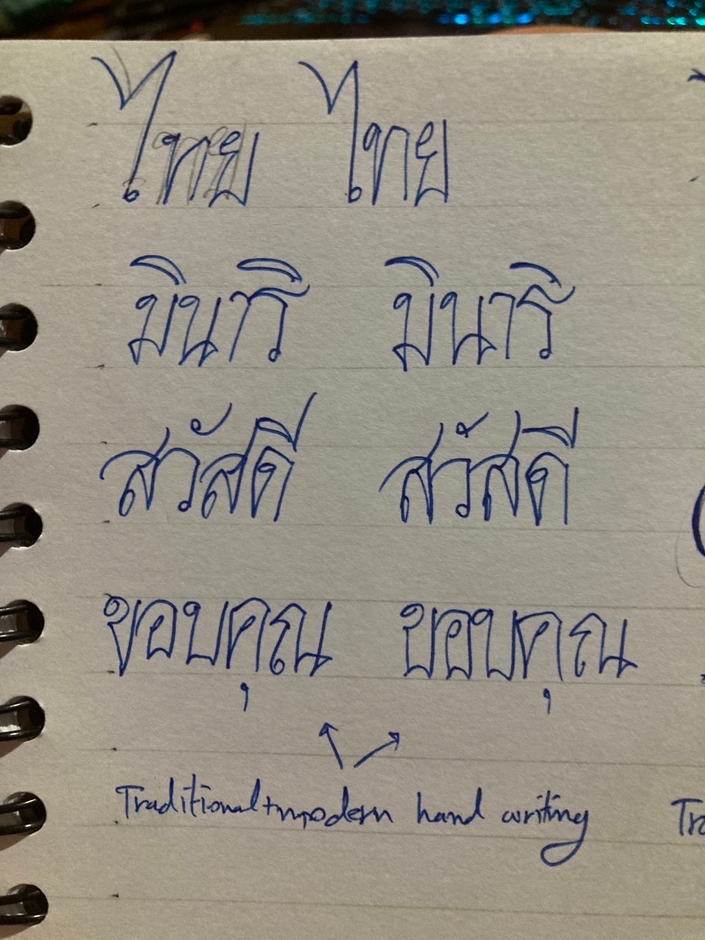 ไทย ไทย
มินาริ มินาริ
สวัสดี สวัสดี
ขอบคุณ ขอบคุณ
Traditional + modern hand writing